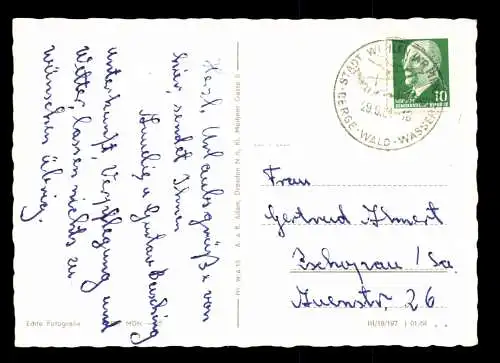 Herzl. Urlaubsgrüße von
hier, sendet Ihnen
Amelie u Gustav
Unterkunft, Verpflegung und
Wetter lassen nichts zu
wünschen übrig.
Echte Fotografie
MDN
Nr. W a 15 A. & R. Adam, Dresden N 6, Kl. Meißner Gasse 8
STADT WEHLEN
BERGE-WALD-WASSER
10
DEUTSCHE
DEMOKRATISCHE REPUBLIK
Frau
Gertrud Ahnert
Zschopau / Sa.
Auenstr. 26
III/18/197 J 01/64